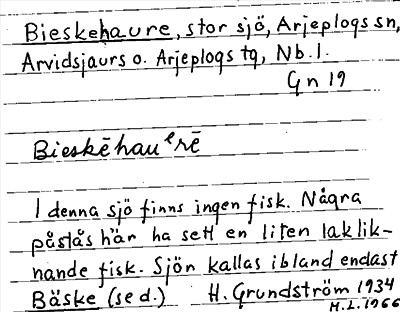 Bieskehaure, stor sjö, Arjeplogs sn,
Arvidsjaurs o. Arjeplogs tg, Nb. l.
Gn 19
Bieskēhauᵉrē
I denna sjö finns ingen fisk. Några
påstås här ha sett en liten laklik-
nande fisk. Sjön kallas ibland endast
Bäske (se d.) H. Grundström 1934
H.L. 1966